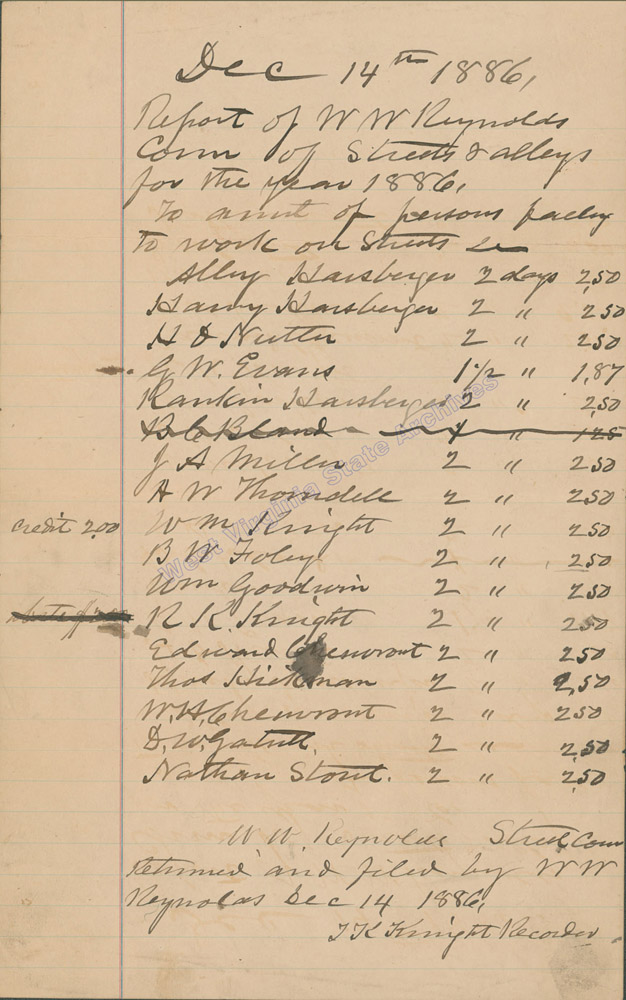 Dec 14th 1886,
Report of W W Reynolds
Com of Streets & alleys
for the year 1886,
To amt of persons failing
to work on Streets &c
Alley Harsberger 2 days 2,50
Harvy Harsberger 2 " 2,50
H D Nutter 2 " 2,50
G W. Evans 1 1/2 " 1,87
Rankin Harsberger 2 " 2,50
B C Bland 1 " 1 25
J A Miller 2 " 2,50
A W Thorndell 2 " 2,50
Credit 2,00 Wm Knight 2 " 2,50
B W Foley 2 " 2,50
Wm Goodwin 2 " 2,50
R K. Knight 2 " 2,50
Edward Chenvront 2 " 2,50
Thos Hickman 2 " 2,50
W. H. Chenvront 2 " 2,50
D. W. 2 " 2,50
Nathan Stout. 2 " 2,50
W. W. Reynolds Street Com
Returned and filed by W W
Reynolds Dec 14 1886,
T K Knight Recorder
West Virginia State Archives